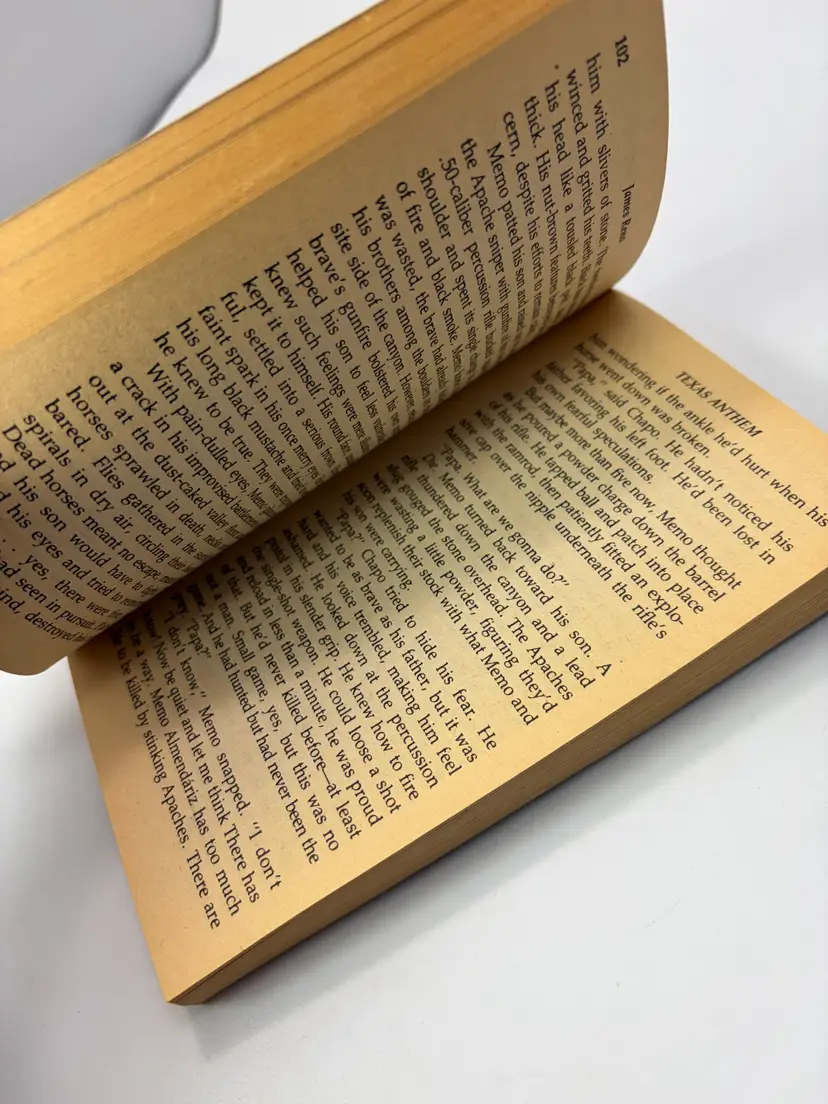 102
James Reno
him with slivers of stone. The
winced and gritted his teeth.
his head like a tousled black
thick. His nut-brown features
cern, despite his efforts to
Memo patted his son and
the Apache sniper with
.50-caliber percussion rifle
shoulder and spent its single
of fire and black smoke. Memo
was wasted, the brave had already
his brothers among the boulders
site side of the canyon. However,
brave's gunfire bolstered his
helped his son to feel less
knew such feelings were
kept it to himself. His round
ful, settled into a serious frown
faint spark in his once merry
his long black mustache and
he knew to be true. They were
With pain-dulled eyes, Memo
a crack in his improvised
out at the dust-caked valley
horses sprawled in death,
bared. Flies gathered in the
spirals in dry air, circling
Dead horses meant no escape,
his son would have to
his eyes and tried to
yes, there were
seen in pursuit.
destroyed
TEXAS ANTHEM
him wondering if the ankle he'd hurt when his
horse went down was broken.
"Papa," said Chapo. He hadn't noticed his
father favoring his left foot. He'd been lost in
his own fearful speculations.
but maybe more than five now, Memo thought
as he poured a powder charge down the barrel
of his rifle. He tapped ball and patch into place
with the ramrod, then patiently fitted an explo-
sive cap over the nipple underneath the rifle's
hammer.
"Papa. What are we gonna do?"
Memo turned back toward his son. A
rifle thundered down the canyon and a lead
slug gouged the stone overhead. The Apaches
were wasting a little powder, figuring they'd
soon replenish their stock with what Memo and
his son were carrying.
"Papa?" Chapo tried to hide his fear. He
wanted to be as brave as his father, but it was
hard and his voice trembled, making him feel
ashamed. He looked down at the percussion
pistol in his slender grip. He knew how to fire
the single-shot weapon. He could loose a shot
and reload in less than a minute, he was proud
of that. But he'd never killed before—at least
not a man. Small game, yes, but this was no
game. And he had hunted but had never been the
prey. "Papa?"
"I don't know," Memo snapped. "I don't
know! Now be quiet and let me think There has
to be a way. Memo Almendáriz has too much
life to be killed by stinking Apaches. There are